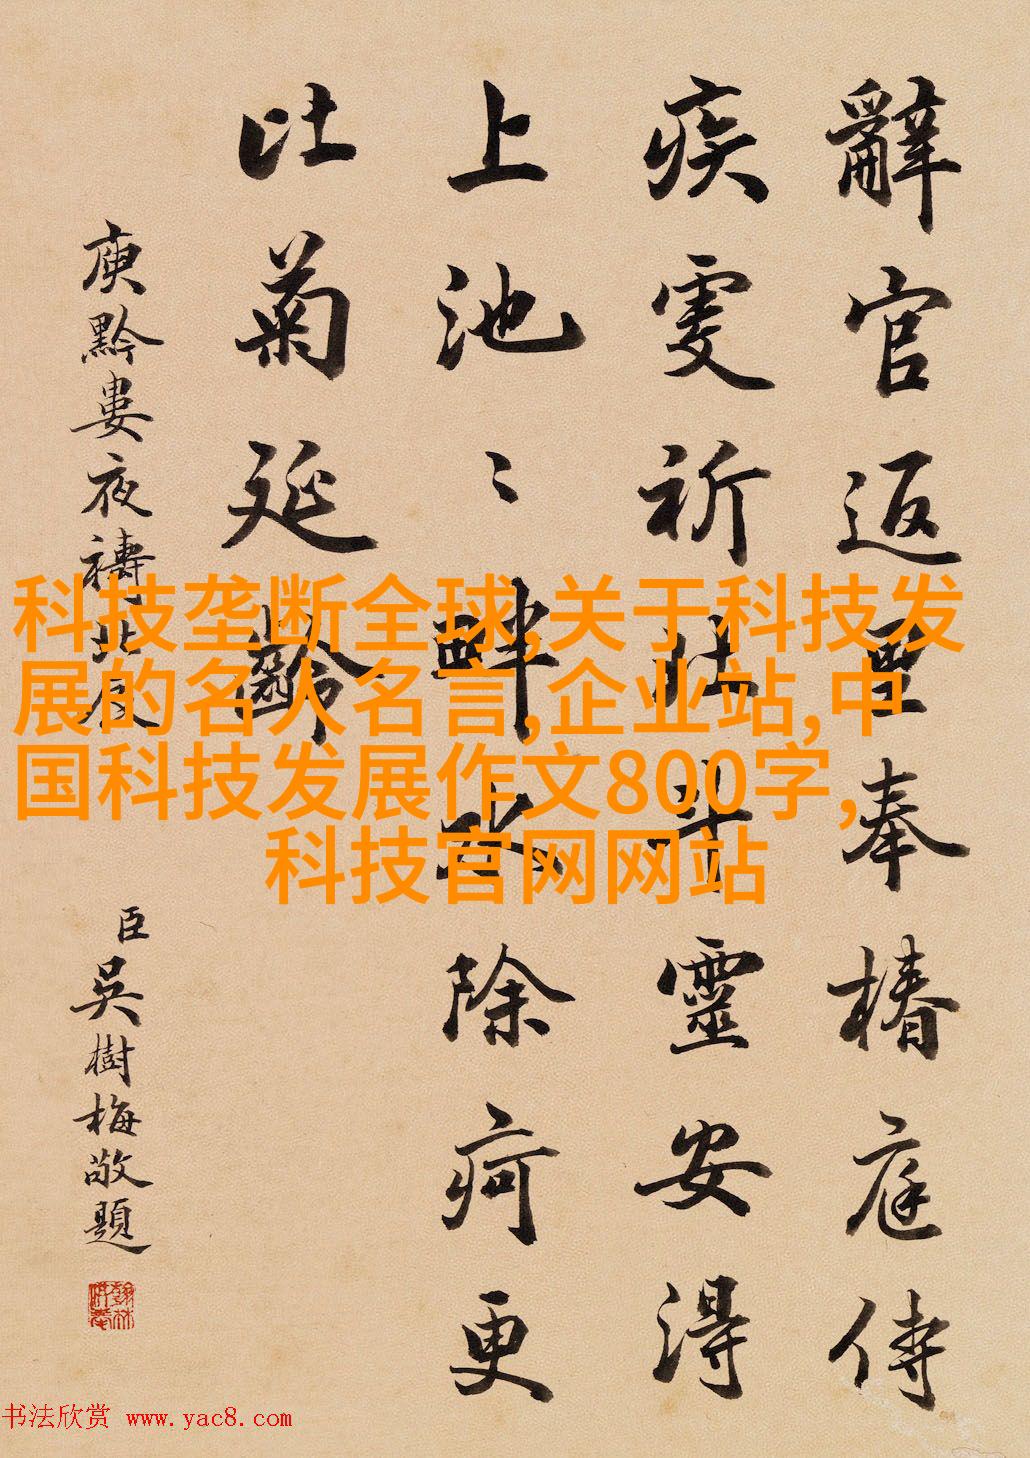 辭官返里奉椿庭侍
疾虔祈北斗靈安得
上池〻畔水除疴更
比菊延齡
庾黔婁夜禱北辰
臣吳樹梅敬題
科技垄断全球,关于科技发
展的名人名言,企业站,中
国科技发展作文800字,
科技官网网站
书法欣赏 www.yac8.com